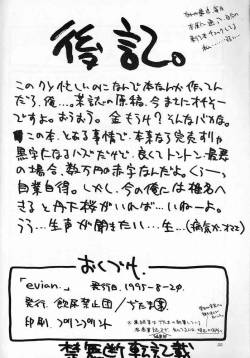 後記。
このクソ忙しいのになんで本なんか作ってん
だろ、俺…。某誌の原稿、今まさにオチそー
ですよ。おうおう。金もうけ?そんなバカな。
この本、とある事情で、本来なら完売すりゃ
黒字になるハズだが、良くてトントン、最悪
の場合、数万円の赤字なんだよ。くぅー、
自業自得。しかし、今の俺には椎名へ
きると丹下桜がいれば…いーよ。
うう…生声が聞きたい…生…(病気か、オマエ)
おくづけ。
「evian.」 発行日. 1995-8-20.
発行. 飲尿禁止団/ぢたま
印刷. プリンプリント
禁無断転記載